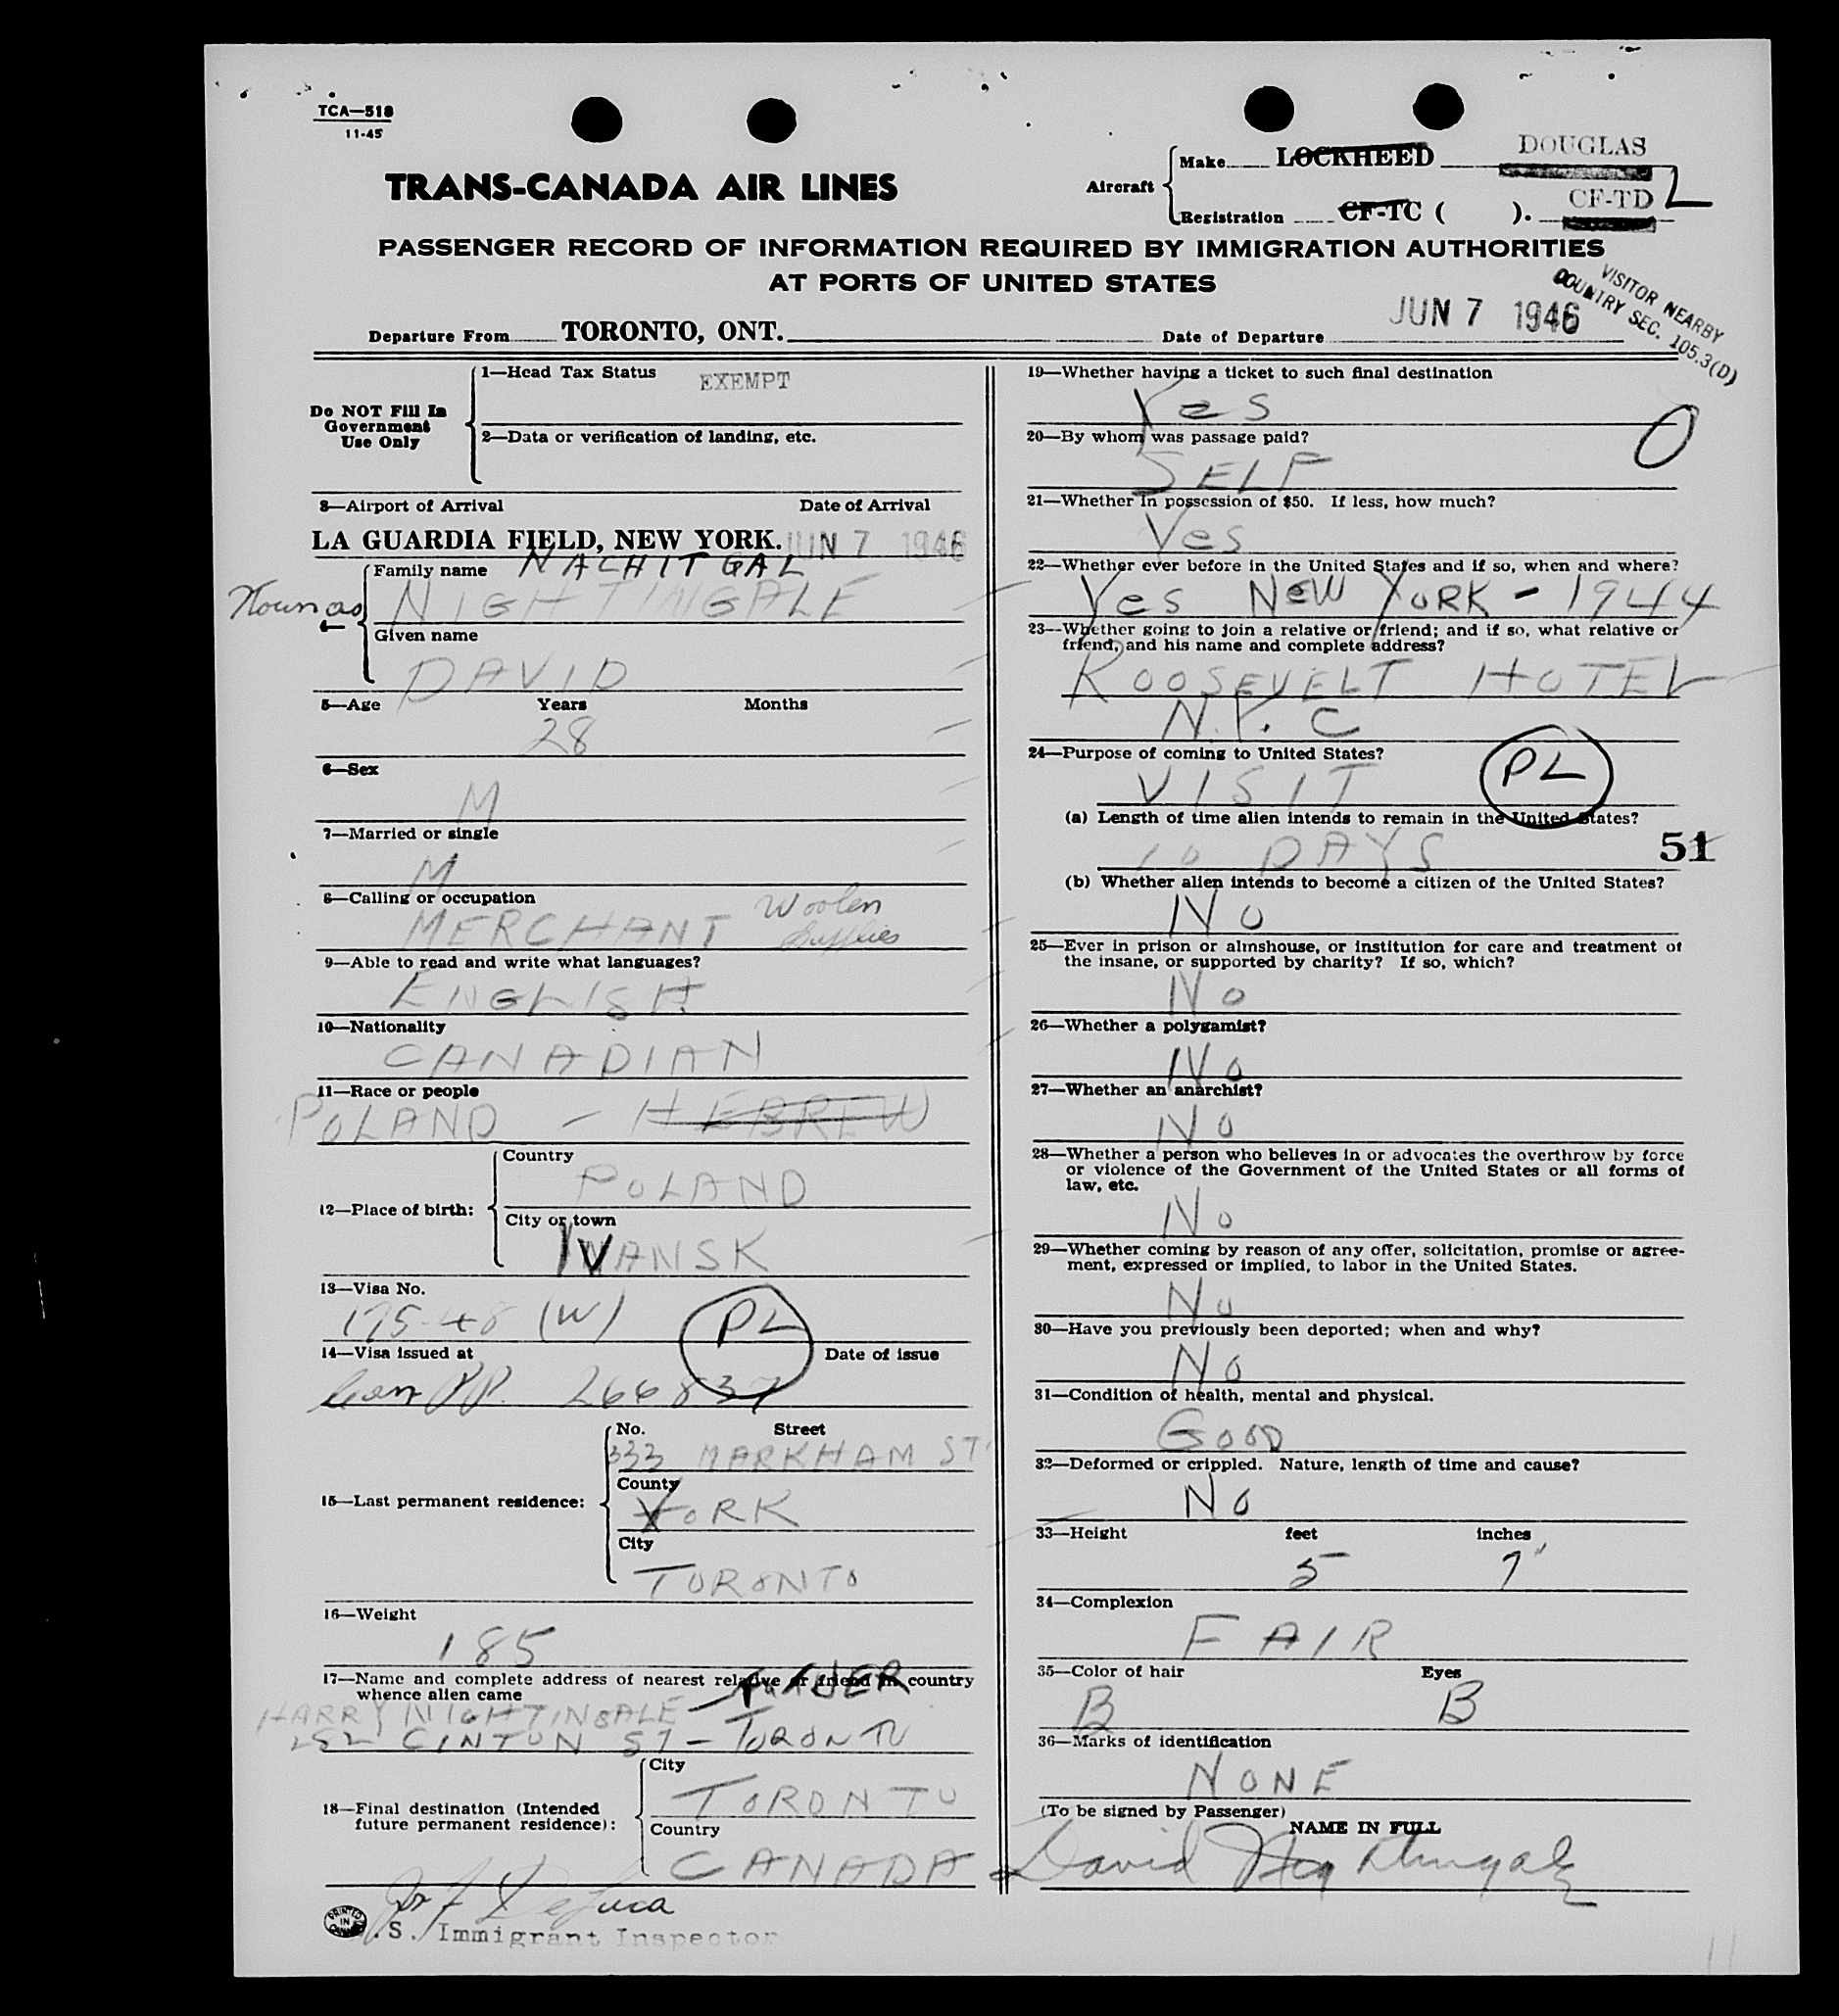 TCA—518
11-45
TRANS-CANADA AIR LINES
Aircraft
Make LOCKHEED DOUGLAS
Registration CF-TC ( ). CF-TD L
PASSENGER RECORD OF INFORMATION REQUIRED BY IMMIGRATION AUTHORITIES
AT PORTS OF UNITED STATES
VISITOR NEARBY
COUNTRY SEC. 105.3(D)
Departure From TORONTO, ONT. Date of Departure JUN 7 1946
Do NOT Fill In
Government
Use Only
1—Head Tax Status EXEMPT
2—Data or verification of landing, etc.
3—Airport of Arrival Date of Arrival
LA GUARDIA FIELD, NEW YORK. JUN 7 1946
Family name NACHITGAL
NIGHTINGALE
Given name
DAVID
5—Age Years Months
28
6—Sex
M
7—Married or single
M
8—Calling or occupation
MERCHANT Woolen
Supplies
9—Able to read and write what languages?
ENGLISH
10—Nationality
CANADIAN
11—Race or people
POLAND - HEBREW
12—Place of birth:
Country
POLAND
City or town
IVANSK
13—Visa No.
175-48 (W) PL
14—Visa issued at Date of issue
Can PP. 266837
15—Last permanent residence:
No. Street
333 MARKHAM ST.
County
YORK
City
TORONTO
16—Weight
185
17—Name and complete address of nearest relative or friend in country
whence alien came
HARRY NIGHTINGALE -
252 CINTON ST - TORONTO
18—Final destination (Intended
future permanent residence):
City
TORONTO
Country
CANADA
PRINTED
IN
CANADA
.S. Immigrant Inspector
19—Whether having a ticket to such final destination
Yes
0
20—By whom was passage paid?
SELF
21—Whether in possession of $50. If less, how much?
Yes
22—Whether ever before in the United States and if so, when and where?
Yes NEW YORK - 1944
23—Whether going to join a relative or friend; and if so, what relative or
friend, and his name and complete address?
ROOSEVELT HOTEL
N.Y.C
24—Purpose of coming to United States?
VISIT PL
(a) Length of time alien intends to remain in the United States?
10 DAYS 51
(b) Whether alien intends to become a citizen of the United States?
No
25—Ever in prison or almshouse, or institution for care and treatment of
the insane, or supported by charity? If so, which?
No
26—Whether a polygamist?
No
27—Whether an anarchist?
No
28—Whether a person who believes in or advocates the overthrow by force
or violence of the Government of the United States or all forms of
law, etc.
No
29—Whether coming by reason of any offer, solicitation, promise or agree-
ment, expressed or implied, to labor in the United States.
No
30—Have you previously been deported; when and why?
No
31—Condition of health, mental and physical.
GOOD
32—Deformed or crippled. Nature, length of time and cause?
No
33—Height feet inches
5 7"
34—Complexion
FAIR
35—Color of hair Eyes
B B
36—Marks of identification
NONE
(To be signed by Passenger)
NAME IN FULL
David Nightingale